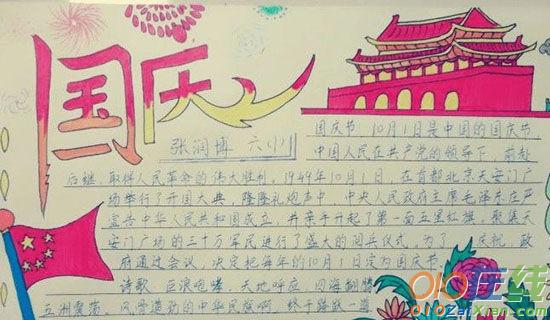 国庆
张润博 六(1)
国庆节，10月1日是中国的国庆节，
中国人民在共产党的领导下，前赴
后继，取得人民革命的伟大胜利，1949年10月1日，在首都北京天安门广
场举行了开国大典，隆隆礼炮声中，中央人民政府主席毛泽东庄严
宣告中华人民共和国成立，并亲手升起了第一面五星红旗，聚集天
安门广场的三十万军民进行了盛大的阅兵仪式，为了 庆祝，政
府通过会议，决定把每年的10月1日定为国庆节。
诗歌，巨浪咆哮，天地呼应，四海翻腾
五洲震荡，风雪遒劲的中华民族啊，终于
在线
ZaiXian.com